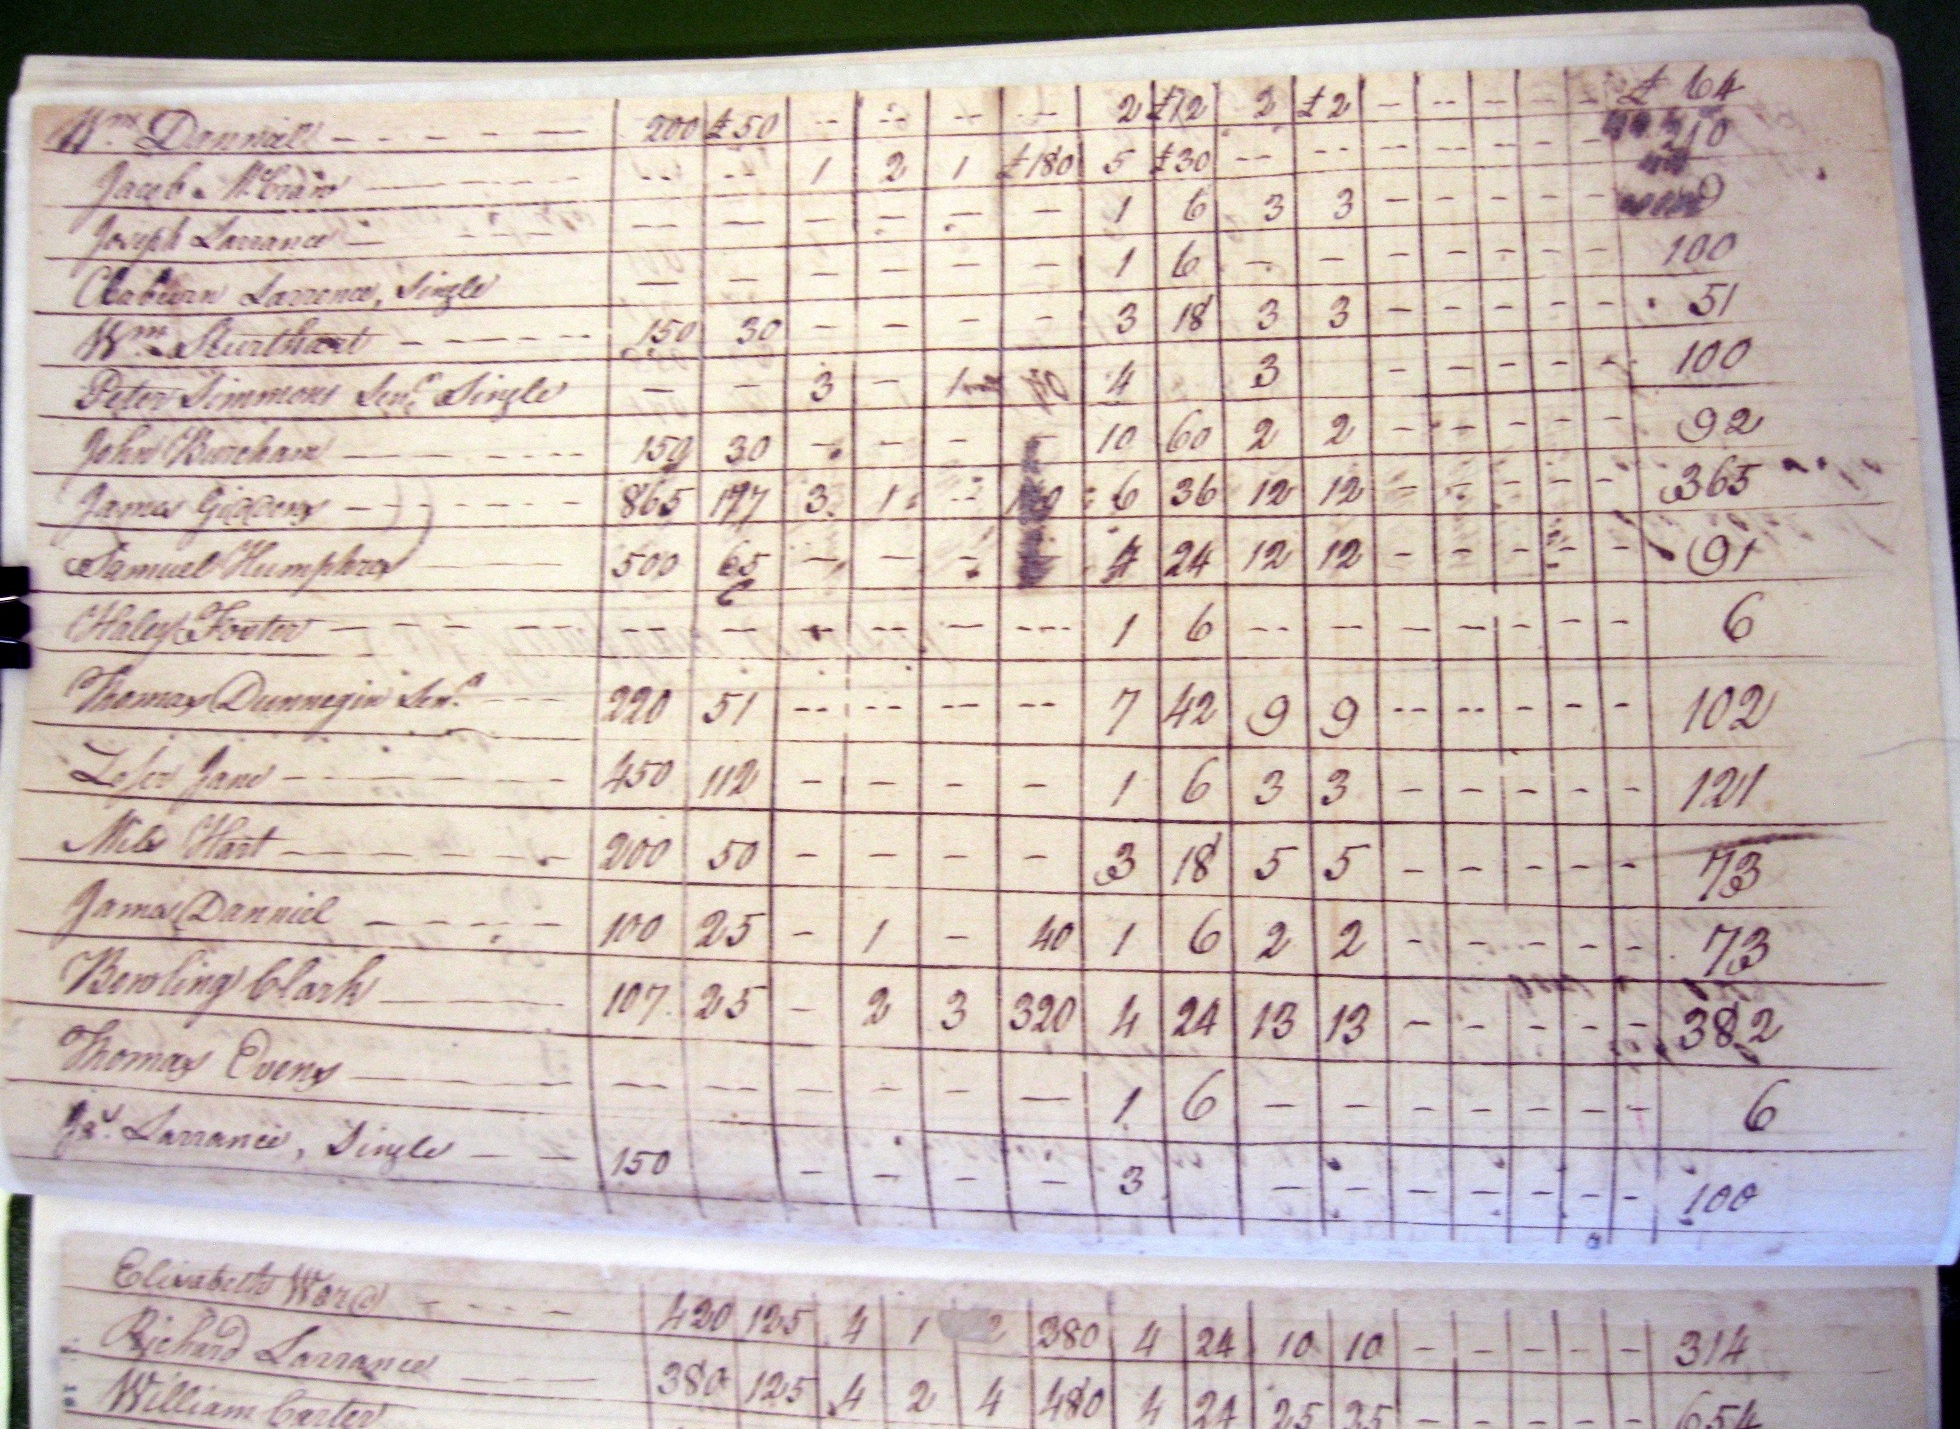 Wm Danniell - - - - - 200 £50 - - - - - - - 2 £12 2 £2 - - - - - £ 64
Jacob McCraw - - - - - - - - - 1 2 1 £180 5 £30 - - - - - - - - - 210
Joseph Larrance - - - - - - - - - 1 6 3 3 - - - - - 9
Claburn Larrence, Single - - - - - - 1 6 - - - - - - - 100
Wm Sturthart - - - - - 150 30 - - - - 3 18 3 3 - - - - - 51
Peter Simmons Senr Single - - 3 - 1 4 3 - - - - - 100
John Burcham - - - - - 150 30 - - - 10 60 2 2 - - - - - 92
James Giddens - - - - - 865 177 3 1 - 6 36 12 12 - - - - - 365
Samuel Humphres - - - 500 65 - - - 4 24 12 12 - - - - - 91
Haley Foster - - - - - - - - - - - 1 6 - - - - - - - - 6
Thomas Dunnegin Senr - - - 220 51 - - - - - - - - 7 42 9 9 - - - - - 102
Lefer Jane - - - - - 450 112 - - - - 1 6 3 3 - - - - - 121
Mile Hart - - - - - 200 50 - - - - 3 18 5 5 - - - - - 73
James Danniel - - - - - 100 25 - 1 - 40 1 6 2 2 - - - - - 73
Bowling Clark - - - 107 25 - 2 3 320 4 24 13 13 - - - - - 382
Thomas Evens - - - - - - - - - 1 6 - - - - - - - 6
Larrance, Single - - 150 - - - - 3 - - - - - - - 100
Elisabeth Word - - - - 420 125 4 1 2 280 4 24 10 10 - - - - - 314
Richard Larrance 380 125 4 2 4 480 4 24 25 25 - - - - - 654
William Carter